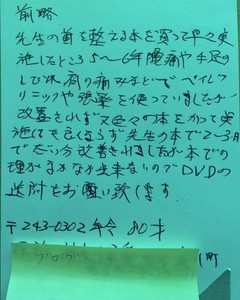 前略
先生の首を整える本を買って早々実
施したところ5〜6年腰痛や手足の
しびれ肩の痛みなどでペイルク
リニックや漢薬を使っていましたが
改善されず又色々の本をかって実
施しても良くならず先生の本で2〜3ヶ月
でだいぶ改善されましたが本での
理がなかなか出来ないのでDVDの
送附をお願い致します
〒243-0302 年令 80才
町